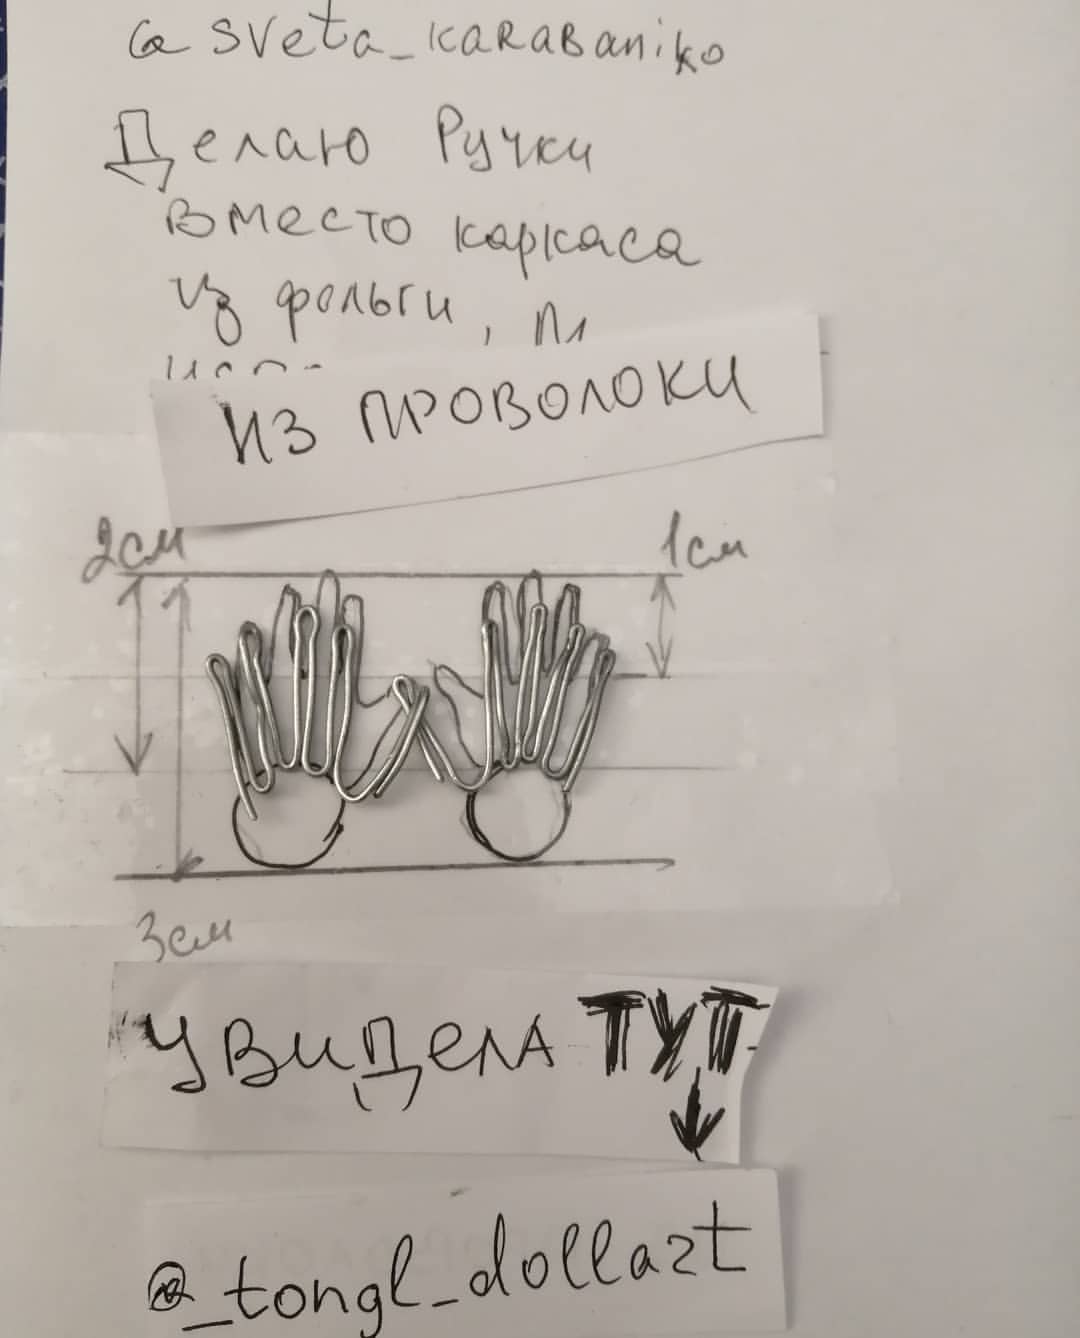 @sveta_karabaniko
Делаю Ручки
вместо каркаса
из фольги,
ИЗ ПРОВОЛОКИ
2см
1см
3см
УВИДЕЛА ТУТ
@_tongl_dollazt